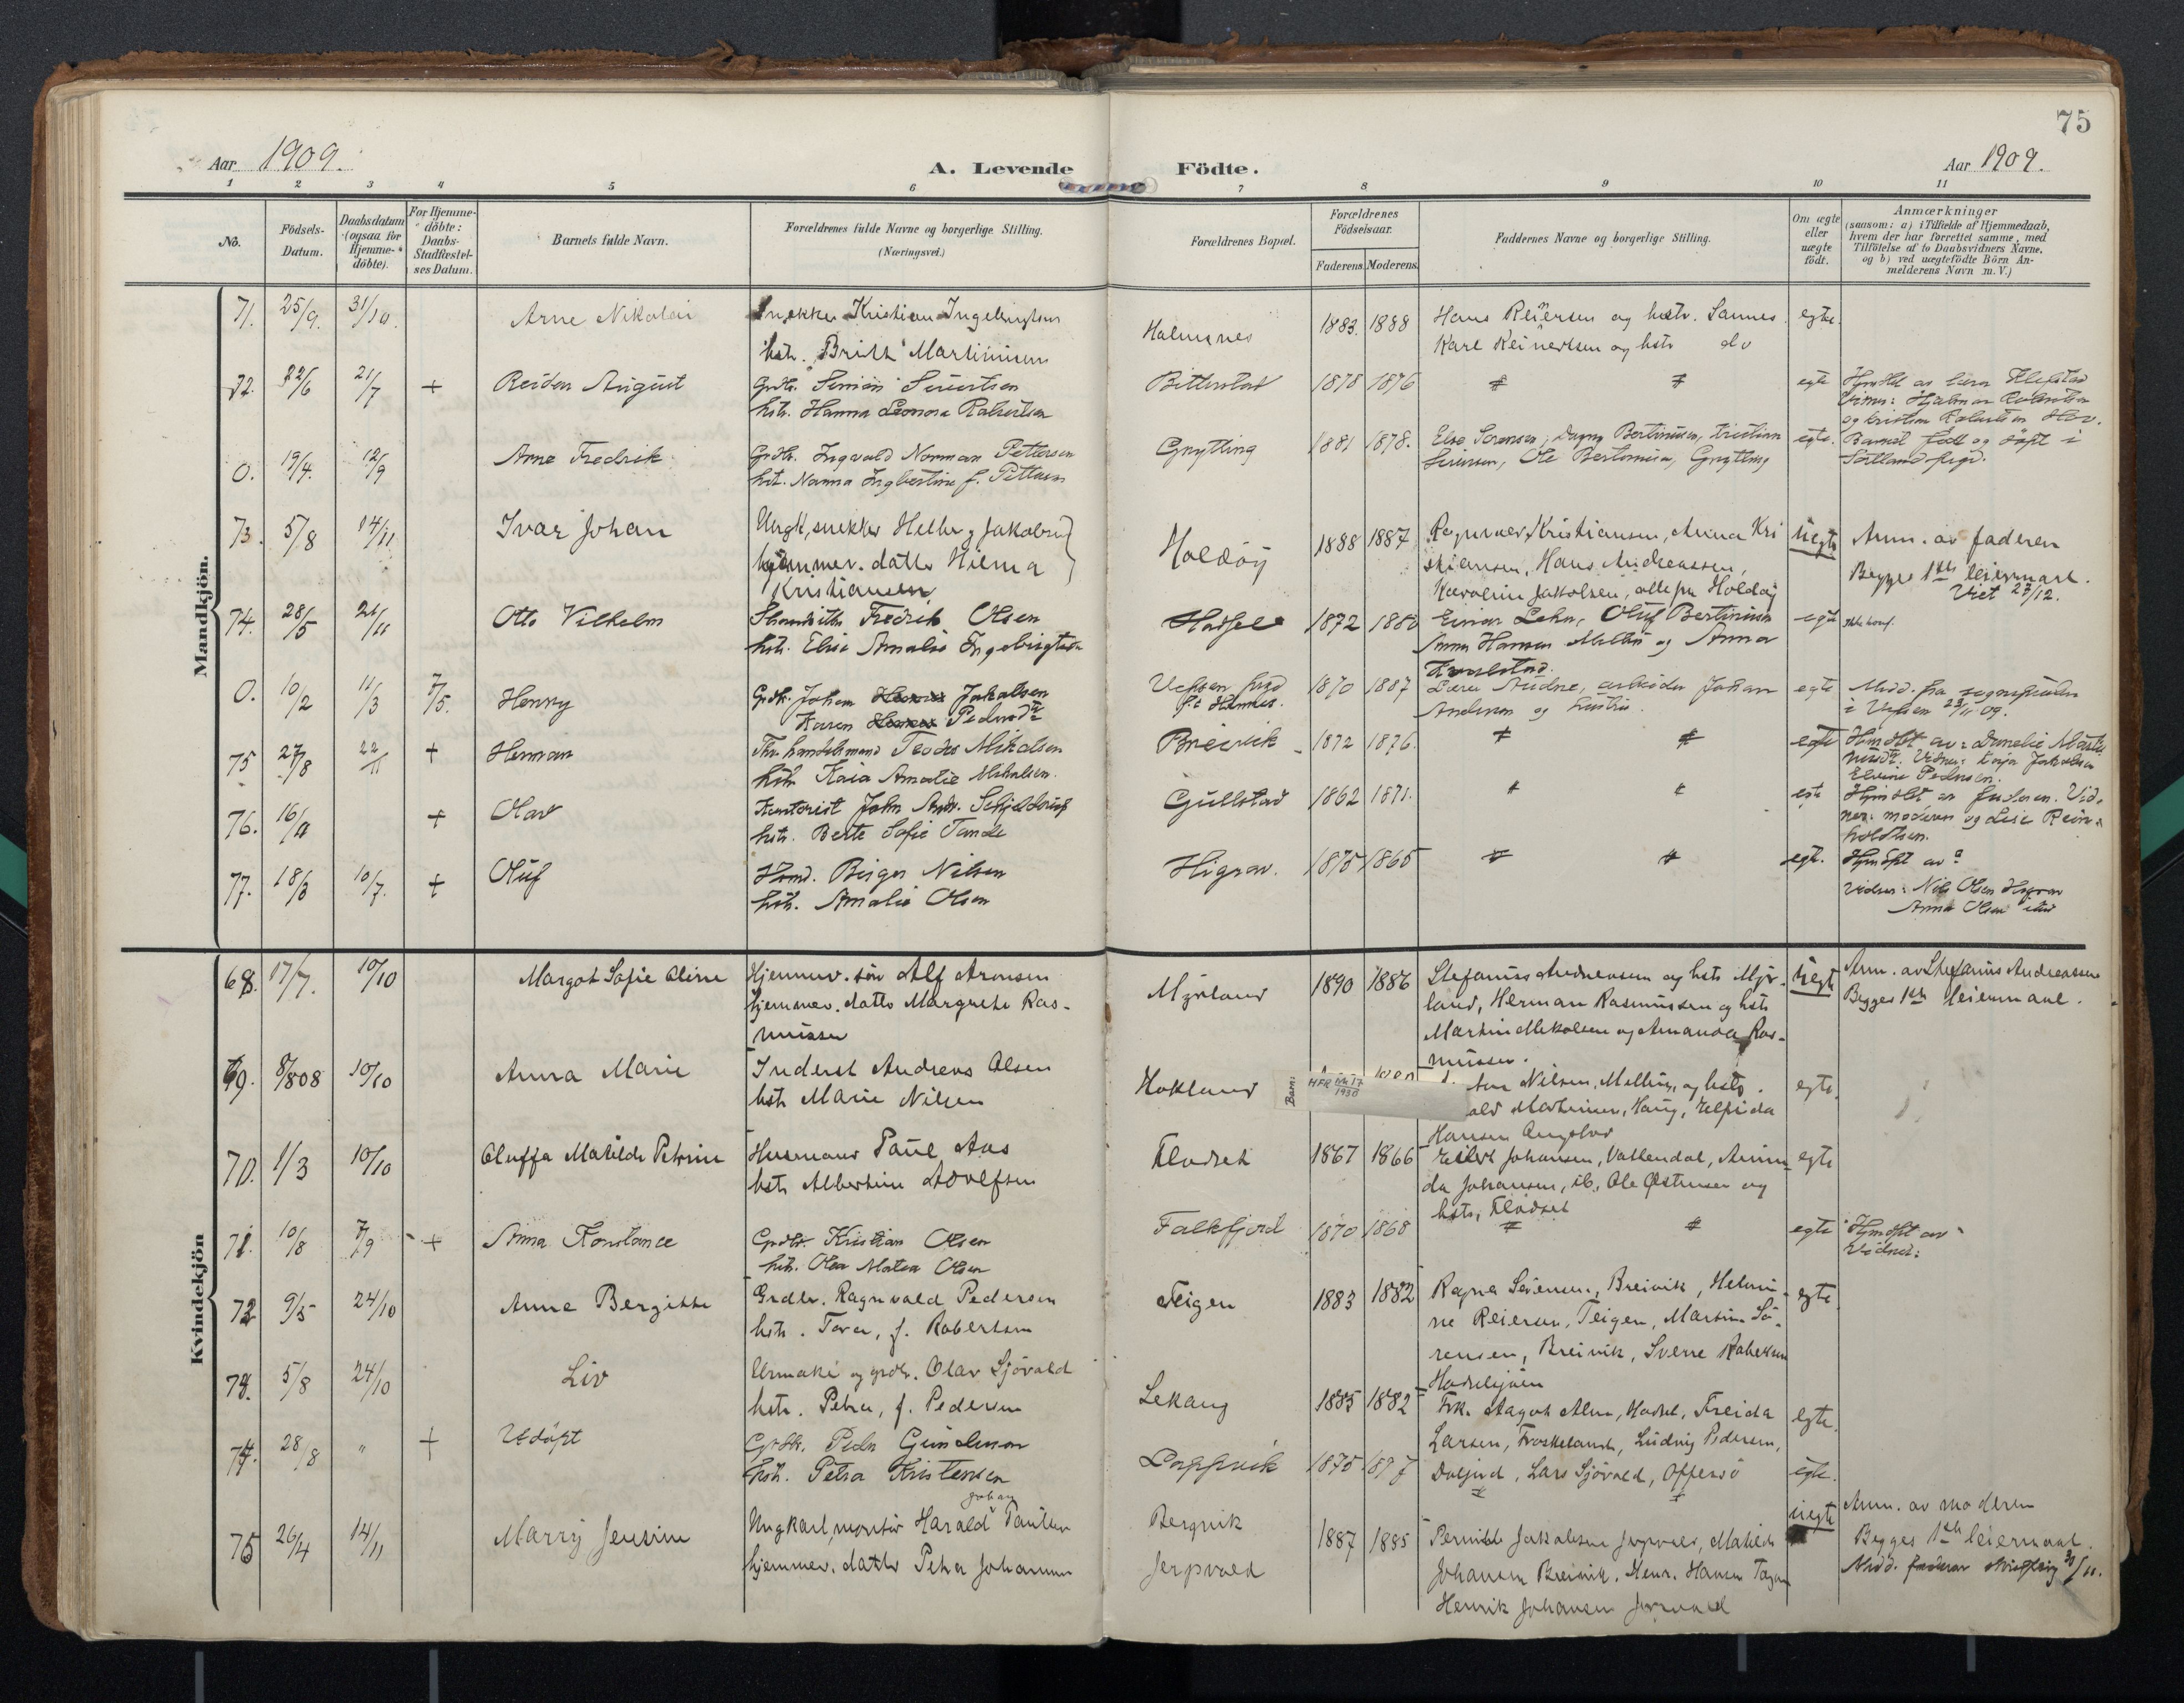 75
Aar 1909.
A. Levende Födte.
Aar 1909.
1 2 3 4 5 6 7 8 9 10 11
No.
Födsels-
Datum.
Daabsdatum
(ogsaa for
Hjemme-
döbte).
For Hjemme-
döbte:
Daabs-
Stadfæstel-
ses Datum.
Barnets fulde Navn.
Forældrenes fulde Navne og borgerlige Stilling.
(Næringsvei.)
Forældrenes Bopæl.
Forældrenes
Födselsaar.
Faderens. Moderens.
Faddernes Navne og borgerlige Stilling.
Om ægte
eller
uægte
födt.
Anmærkninger
(saasom: a) i Tilfælde af Hjemmedaab,
hvem der har forrettet samme, med
Tilföielse af to Daabsvidners Navne,
og b) ved uægtefödte Börn An-
melderens Navn m. V.)
Mandkjön.
71. 25/9. 31/10. Arne Nikolai
Snekker Kristian Ingebrigtsen
hstr. Martinusen
Holmsnes 1883. 1888
Hans Reiersen og hstr. Sannes
Karl Reinertsen og hstr do
egte.
72. 22/6 21/7 + Reidar August
Grdbr. Simon Sivertsen
hstr. Hanna Leonora Robertsen
Bitterstad 1878 1876 # # egte
Hjmdbt av lærer Klefstad
Vidner: Hjalmar Robertsen
og Kristine Robertsen
0. 19/4. 12/9 Arne Fredrik
Grdbr. Ingvald Norman Pettersen
hst. Nanna Ingbertine f. Pettersen
Grytting 1881 1878.
Else Sørensen, Dagny Bertinusen, Kristian
Sivertsen, Ole Bertinusen, Grytting
egte.
Barnet født og døpt i
Sortland
73. 5/8 14/11 Ivar Johan
Ungk, snekker Helberg Jakobsen
hjemmev. datter Hilma
Kristiansen
Holdøy 1888 1887
Ragnvald Kristiansen, Anna Kri
stiansen, Hans Andreassen,
Karoline Jakobsen, alle fra Holdøy
uegte
Anm. av faderen
Begges 1ste leiermaal.
Viet 23/12.
74. 28/5 21/11 Otto Vilhelm
Strandsitter Fredrik Olsen
hstr. Elise Amalie Ingebrigtsen
Hadsel 1872 1880
Einar Lehn, Oluf Bertinusen
Anna Hansen Melbu og Anna
egte
0. 10/2 11/3 7/5. Henny
Grdbr. Johan Jakobsen
Karen Pedersdtr
Vefsen 1870 1887
Lærer arbeider Johan
Andersen og hustru
egte
Medd. fra sognepresten
i Vefsen 23/11 09.
75 27/8 22/11 + Herman
Fhv. handelsmand Teodor Mikalsen
hstr. Kaia Amalie Mikalsen.
Breivik 1872 1876. # # egte
Hjmdbt av:
Vidner: Jakobsen
Pedersen.
76. 16/9 + Olav
Kontorist John Andr. Schjelderup
hstr. Berte Sofie Tande
Gullstad 1862 1871. # # egte
Hjmdbt av faderen. Vid-
ner: moderen og Lise Rein-
holdtsen.
77. 18/3 10/7. + Oluf
Birger Nilsen
hstr. Amalie Olsen
Higrav. 1875 1865 # # egte.
Hjmdpt av?
Vidner: Nils Olsen Higrav
Anna Olsen
Kvindekjön
68. 17/7. 10/10 Margot Sofie Aline
Hjemmev. søn Alf Aronsen
hjemmev. datter Margrethe Ras-
mussen
Myrland 1890 1886
Stefanus Andreassen og hstr Myr-
land, Herman Rasmussen og hstr
Martin Mikalsen og Amanda Ras-
mussen.
uegte
Anm. av Stefanus Andreassen
Begges 1ste leiermaal.
69. 8/8 08 10/10 Anna Marie
Inderst Andreas Olsen
hstr Marie Nilsen
Hokland
Barn: HFR 1930
Nilsen, Melbu, og hstr.
Haug, Elfrida
Hansen
egte.
70. 1/3 10/10 Oluffa Matilde Petrine
Husmand Paul Aas
hstr Albertine Adolfsen
Flodset 1867 1866
Eilert Johansen, Vollendal, Amin-
da Johansen, ib., Ole Østensen og
hstr, Flodset
egte
71. 10/8 7/9 + Anna Konstance
Grdbr. Kristian Olsen
hstr. Olea Matea Olsen
Falkfjord 1870 1868 # # egte
Hjmdpt av
Vidner:
72 9/5 24/10 Anne Bergitte
Grdbr. Ragnvald Pedersen
hstr. Tora, f. Robertsen
Teigen 1883 1882
Ragna Sørensen, Breivik, Helmi-
ne Reiersen, Teigen, Martin Sø-
rensen, Breivik, Sverre Robertsen
egte
73. 5/8 24/10 Liv
Urmaker og grdbr. Olav Sjøvold
hstr. Petra, f. Pedersen
Lekang 1885 1882
Frk. Aagot Alm, Hadsel, Freida
Larsen, Froskeland, Ludvig Pedersen,
Lars Sjøvold, Offersø
egte.
74. 28/8 " + Udøpt
Grdbr. Peder Gundersen
hstr. Petra Kristensen
1875 # # egte.
75 26/4 14/11 Marry Jensine
Ungkarl, montør Harald Johan Paulsen
hjemmev. datter Petra Johansen
Bergvik
Jerpvold
1887 1885
Pernille Jakobsen Jerpvold, Matilde
Johansen Breivik, Henr. Hansen
Henrik Johansen Jerpvold
uegte
Anm. av moderen
Begges 1ste leiermaal.
Medd. faderen skriftlig 30/11.